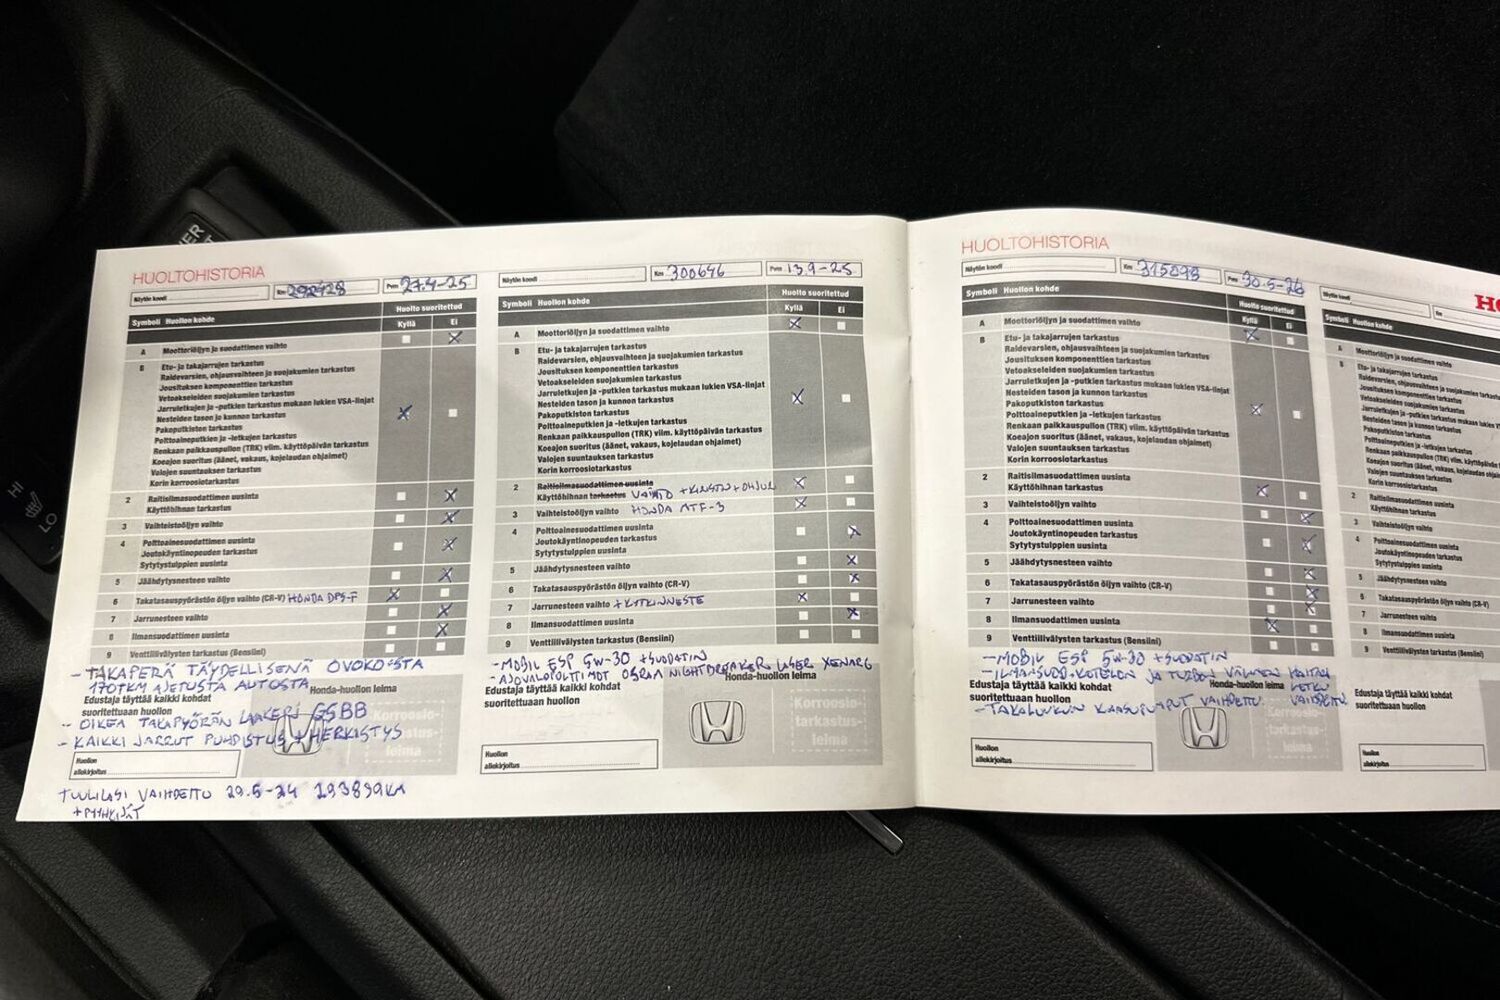 HUOLTOHISTORIA
Näytön koodi
Km 292928
Pvm 27.4-25
Symboli Huollon kohde
Huolto suoritettud
Kyllä Ei
A Moottoriöljyn ja suodattimen vaihto
B Etu- ja takajarrujen tarkastus
Raidevarsien, ohjausvaihteen ja suojakumien tarkastus
Jousituksen komponenttien tarkastus
Vetoakseleiden suojakumien tarkastus
Jarruletkujen ja -putkien tarkastus mukaan lukien VSA-linjat
Nesteiden tason ja kunnon tarkastus
Pakoputkiston tarkastus
Polttoaineputkien ja -letkujen tarkastus
Renkaan paikkauspullon (TRK) viim. käyttöpäivän tarkastus
Koeajon suoritus (äänet, vakaus, kojelaudan ohjaimet)
Valojen suuntauksen tarkastus
Korin korroosiotarkastus
2 Raitisilmasuodattimen uusinta
Käyttöhihnan tarkastus
3 Vaihteistoöljyn vaihto
4 Polttoainesuodattimen uusinta
Joutokäyntinopeuden tarkastus
Sytytystulppien uusinta
5 Jäähdytysnesteen vaihto
6 Takatasauspyörästön öljyn vaihto (CR-V) HONDA DPS-F
7 Jarrunesteen vaihto
8 Ilmansuodattimen uusinta
9 Venttiilivälysten tarkastus (Bensiini)
- TAKAPERÄ TÄYDELLISENÄ OVOKO:STA
170TKM AJETUSTA AUTOSTA
Honda-huollon leima
Edustaja täyttää kaikki kohdat
suoritettuaan huollon
- OIKEA TAKAPYÖRÄN LAAKERI GSBB
- KAIKKI JARRUT PUHDISTUS + HERKISTYS
Korroosio-
tarkastus-
leima
Huollon
allekirjoitus
TUULILASI VAIHDETTU 29.5-24 293899KM
+ PYYHKIJÄT
Näytön koodi
Km 300646
Pvm 13.9-25
Symboli Huollon kohde
Huolto suoritettud
Kyllä Ei
A Moottoriöljyn ja suodattimen vaihto
B Etu- ja takajarrujen tarkastus
Raidevarsien, ohjausvaihteen ja suojakumien tarkastus
Jousituksen komponenttien tarkastus
Vetoakseleiden suojakumien tarkastus
Jarruletkujen ja -putkien tarkastus mukaan lukien VSA-linjat
Nesteiden tason ja kunnon tarkastus
Pakoputkiston tarkastus
Polttoaineputkien ja -letkujen tarkastus
Renkaan paikkauspullon (TRK) viim. käyttöpäivän tarkastus
Koeajon suoritus (äänet, vakaus, kojelaudan ohjaimet)
Valojen suuntauksen tarkastus
Korin korroosiotarkastus
2 Raitisilmasuodattimen uusinta
Käyttöhihnan tarkastus VAIHTO + KIRISTIN + OHJURI
3 Vaihteistoöljyn vaihto HONDA MTF-3
4 Polttoainesuodattimen uusinta
Joutokäyntinopeuden tarkastus
Sytytystulppien uusinta
5 Jäähdytysnesteen vaihto
6 Takatasauspyörästön öljyn vaihto (CR-V)
7 Jarrunesteen vaihto + KYTKINNESTE
8 Ilmansuodattimen uusinta
9 Venttiilivälysten tarkastus (Bensiini)
- MOBIL ESP 5W-30 + SUODATIN
- AJOVALOPOLTTIMOT OSRAM NIGHTBREAKER LASER XENARC
Honda-huollon leima
Edustaja täyttää kaikki kohdat
suoritettuaan huollon
Korroosio-
tarkastus-
leima
Huollon
allekirjoitus
HUOLTOHISTORIA
Näytön koodi
Km 315098
Pvm 30.5-26
Symboli Huollon kohde
Huolto suoritettud
Kyllä Ei
A Moottoriöljyn ja suodattimen vaihto
B Etu- ja takajarrujen tarkastus
Raidevarsien, ohjausvaihteen ja suojakumien tarkastus
Jousituksen komponenttien tarkastus
Vetoakseleiden suojakumien tarkastus
Jarruletkujen ja -putkien tarkastus mukaan lukien VSA-linjat
Nesteiden tason ja kunnon tarkastus
Pakoputkiston tarkastus
Polttoaineputkien ja -letkujen tarkastus
Renkaan paikkauspullon (TRK) viim. käyttöpäivän tarkastus
Koeajon suoritus (äänet, vakaus, kojelaudan ohjaimet)
Valojen suuntauksen tarkastus
Korin korroosiotarkastus
2 Raitisilmasuodattimen uusinta
Käyttöhihnan tarkastus
3 Vaihteistoöljyn vaihto
4 Polttoainesuodattimen uusinta
Joutokäyntinopeuden tarkastus
Sytytystulppien uusinta
5 Jäähdytysnesteen vaihto
6 Takatasauspyörästön öljyn vaihto (CR-V)
7 Jarrunesteen vaihto
8 Ilmansuodattimen uusinta
9 Venttiilivälysten tarkastus (Bensiini)
- MOBIL ESP 5W-30 + SUODATIN
- ILMANSUOD.KOTELON JA TURBON VÄLINEN
LETKU VAIHDETTU
Honda-huollon leima
Edustaja täyttää kaikki kohdat
suoritettuaan huollon
- TAKALUUKUN KAASUPUMPUT VAIHDETTU
Korroosio-
tarkastus-
leima
Huollon
allekirjoitus
HO
Näytön koodi
Km
Symboli Huollon kohde
A Moottoriöljyn ja suodattimen vaihto
B Etu- ja takajarrujen tarkastus
Raidevarsien, ohjausvaihteen ja suojakumien
Jousituksen komponenttien tarkastus
Vetoakseleiden suojakumien tarkastus
Jarruletkujen ja -putkien tarkastus mukaan lukien
Nesteiden tason ja kunnon tarkastus
Pakoputkiston tarkastus
Polttoaineputkien ja -letkujen tarkastus
Renkaan paikkauspullon (TRK) viim. käyttöpäivän
Koeajon suoritus (äänet, vakaus, kojelaudan
Valojen suuntauksen tarkastus
Korin korroosiotarkastus
2 Raitisilmasuodattimen uusinta
Käyttöhihnan tarkastus
3 Vaihteistoöljyn vaihto
4 Polttoainesuodattimen uusinta
Joutokäyntinopeuden tarkastus
Sytytystulppien uusinta
5 Jäähdytysnesteen vaihto
6 Takatasauspyörästön öljyn vaihto (CR-V)
7 Jarrunesteen vaihto
8 Ilmansuodattimen uusinta
9 Venttiilivälysten tarkastus (Bensiini)
Edustaja täyttää kaikki kohdat
suoritettuaan huollon
Huollon
allekirjoitus
HI
LO